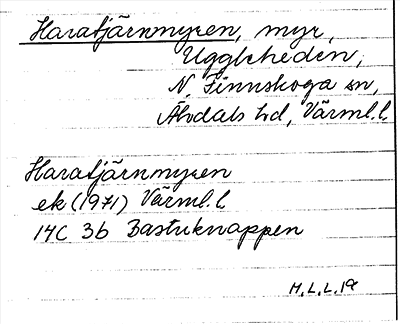 Haratjärnmyren, myr,
Uggleheden,
N. Finnskoga sn,
Älvdals hd, Värml.l.
Haratjärnmyren
ek (1971) Värml.l
14C 3b Bastuknappen
H.L.L.